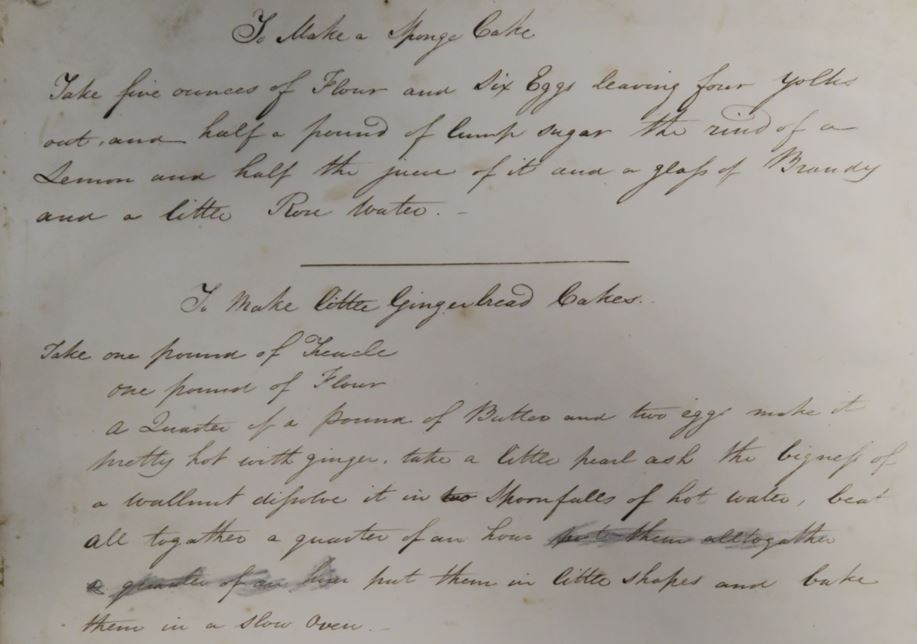 To Make a Sponge Cake
Take five ounces of Flour and Six Eggs leaving four yolks
out, and half a pound of lump sugar the rind of a
Lemon and half the juce of it and a glass of Brandy
and a little Rose Water. -
To Make little Gingerbread Cakes.
Take one pound of Treacle
one pound of Flour
A Quarter of a pound of Butter and two eggs make it
pretty hot with ginger, take a little pearl ash the bigness of
a wallnut dissolve it in two Spoonfulls of hot water, beat
all togather a quarter of an hour puts them alltogather
a quarter of an hour put them in little shapes and bake
them in a slow Oven. -